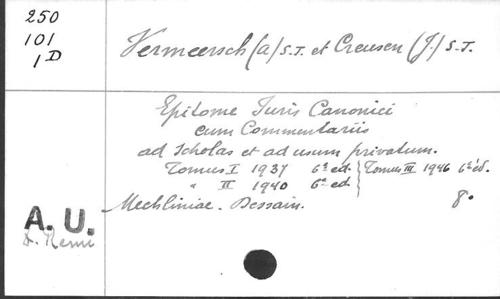 250
101
1D
Vermeersch (a) S.J. et Creusen (J.) S.J.
Epitome Iuris Canonici
cum Commentariis
ad Scholas et ad usum privatum.
Tomus I 1937 6a ed. } Tomus III 1946 6e éd.
" II 1940 6a ed.
Mechliniae. Dessain. 8°.
A. U.